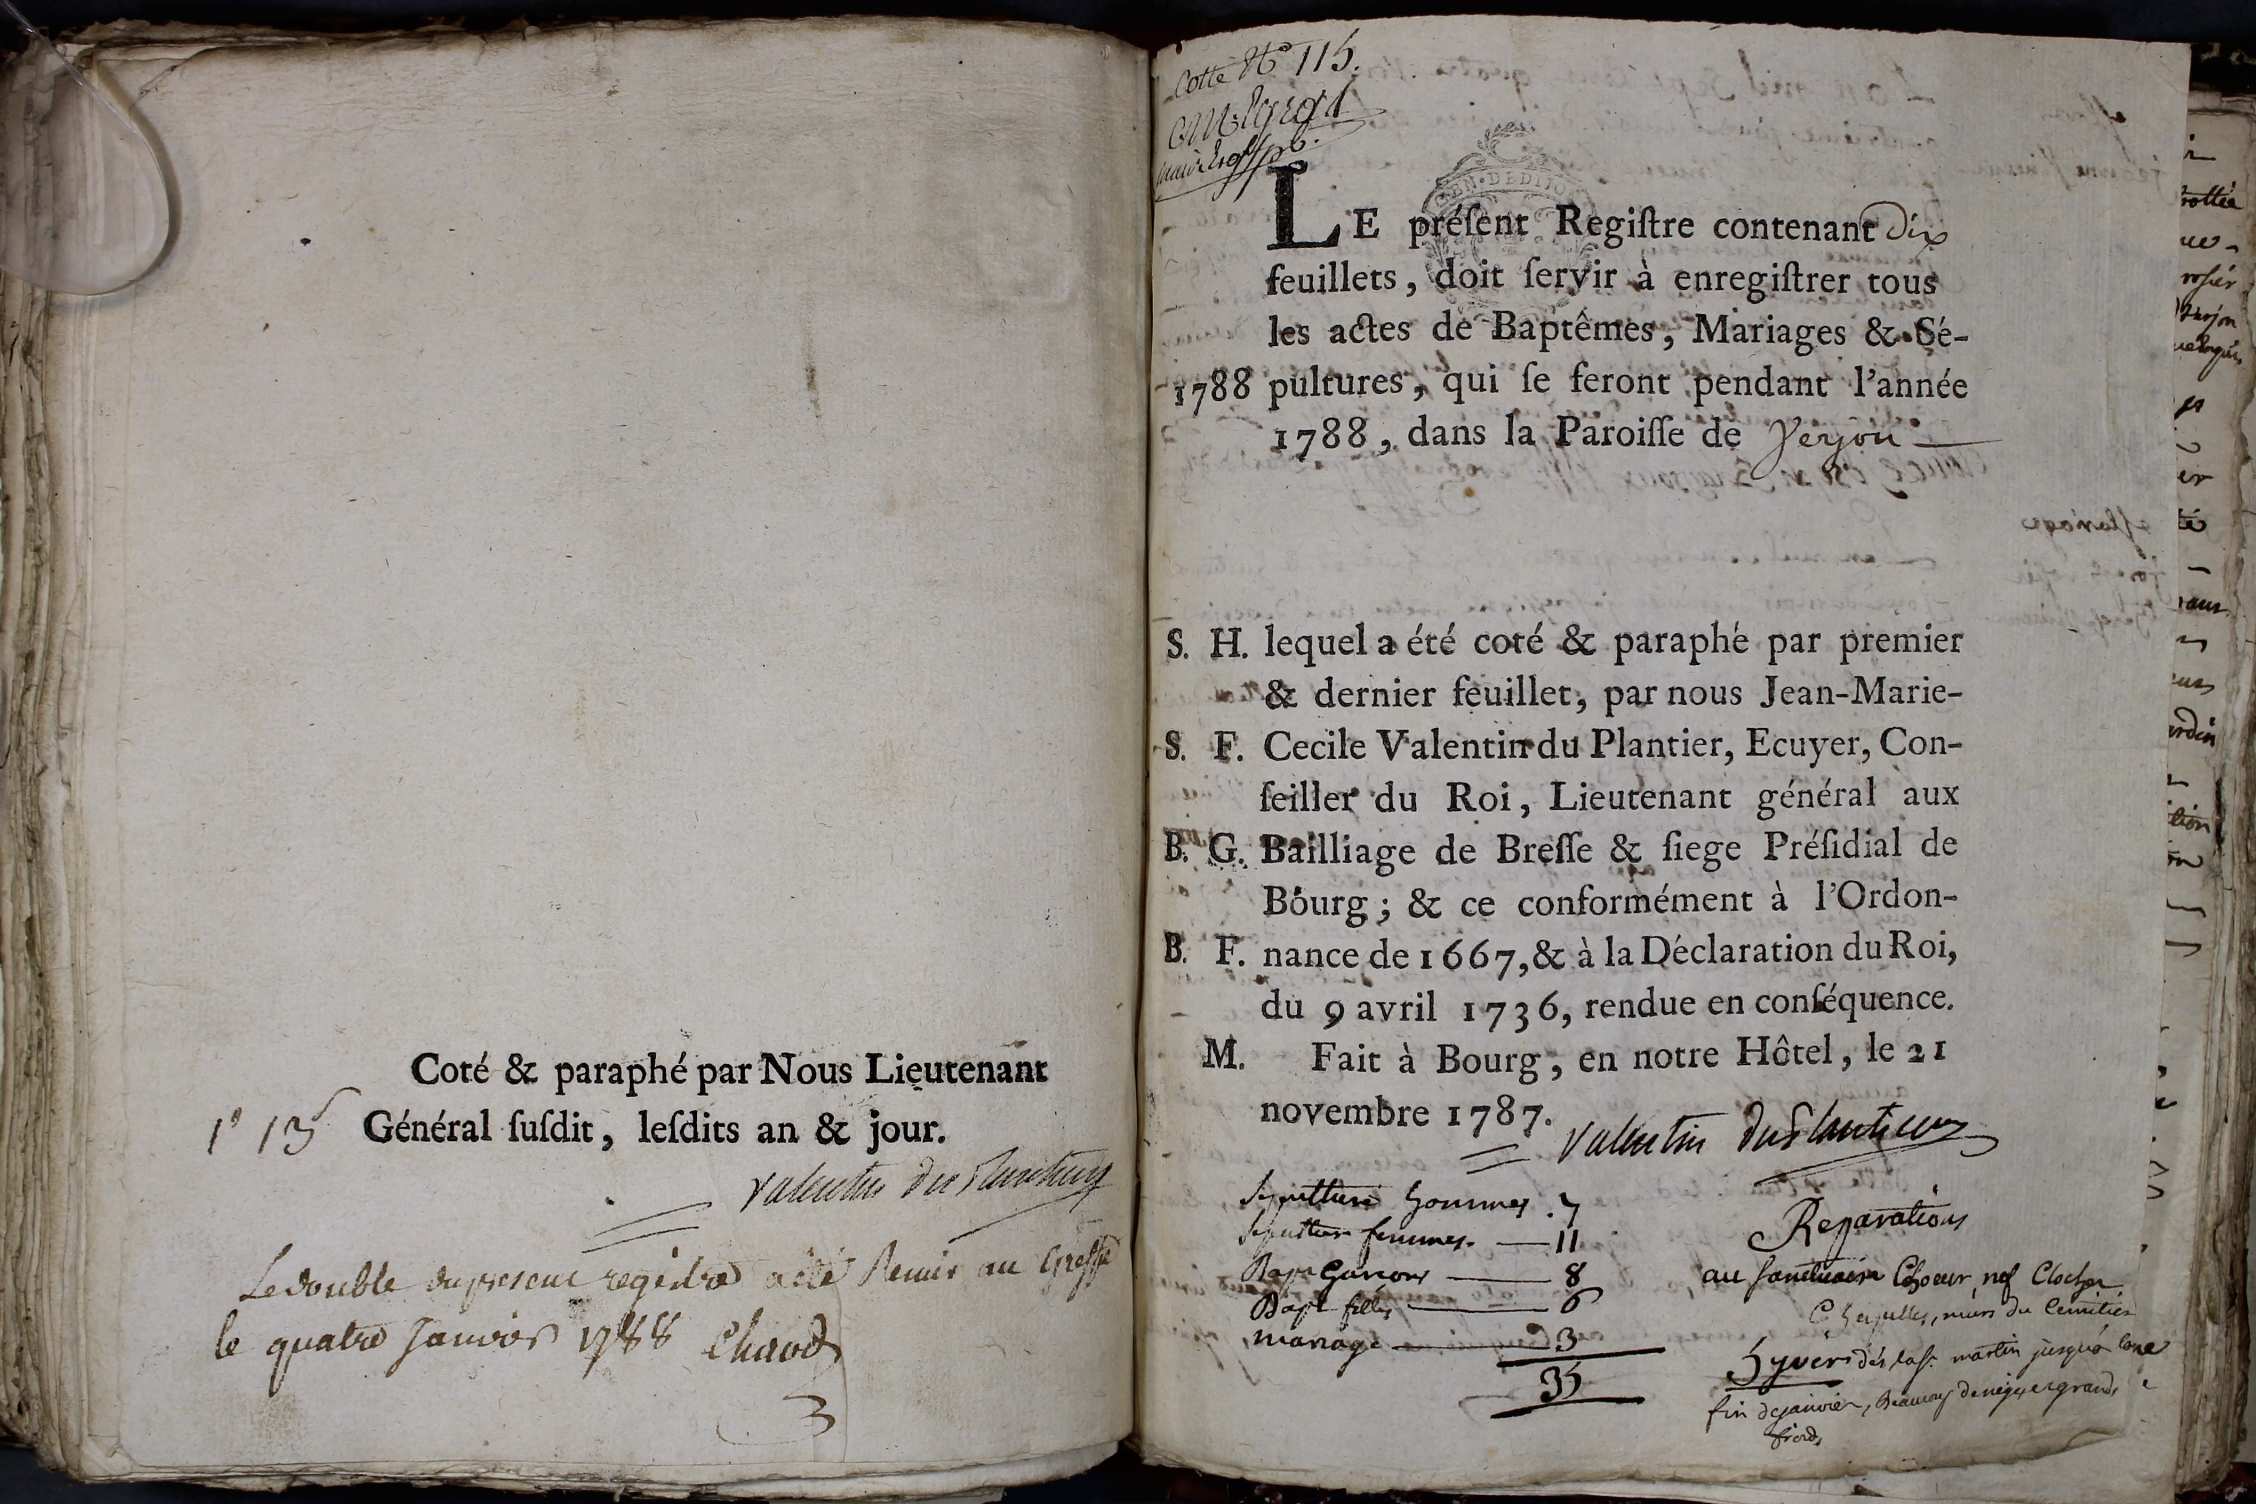 Coté & paraphé par Nous Lieutenant
Général ſuſdit, leſdits an & jour.
Valentin du Plantier
Le double du present regitre a été Remis au Greffe
le quatre Janvier 1788 Chavod
3
Cotte N° 115.
LE préſent Regiſtre contenant Dix
feuillets, doit ſervir à enregiſtrer tous
les actes de Baptêmes, Mariages & Sé-
1788 pultures, qui ſe feront pendant l'année
1788, dans la Paroiſſe de Verjon
S. H. lequel a été coté & paraphé par premier
& dernier feuillet, par nous Jean-Marie-
S. F. Cecile Valentin du Plantier, Ecuyer, Con-
ſeiller du Roi, Lieutenant général aux
B. G. Bailliage de Breſſe & ſiege Préſidial de
Bourg; & ce conformément à l'Ordon-
B. F. nance de 1667, & à la Déclaration du Roi,
du 9 avril 1736, rendue en conſéquence.
M. Fait à Bourg, en notre Hôtel, le 21
novembre 1787.
Valentin du Plantier
Sepulture hommes 7
Sepulture femmes 11
Bap. Garcons 8
Bapt filles 6
mariage 3
35
Reparations
au Sanctuaire Choeur nef Clocher
Chapelles, murs du Cimitier
hyver dés la St. martin jusqu'à la
fin de janvier, Beaucoup de neiges et grands
froids